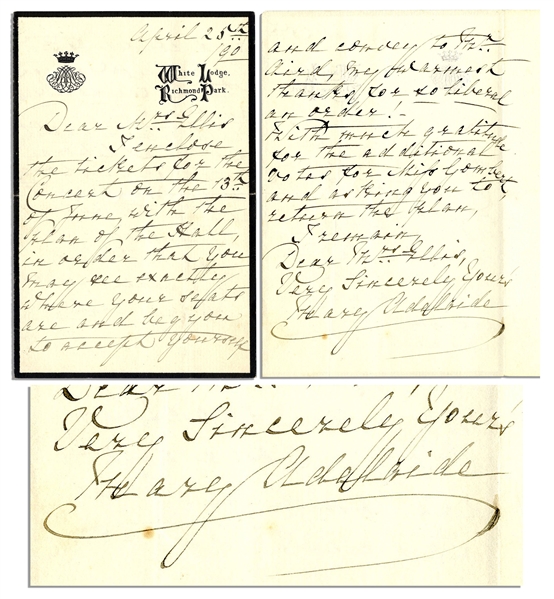 April 25th
/90
White Lodge,
Richmond Park.
Dear Mrs Ellis
I enclose
the tickets for the
Concert on the 13th
of June, with the
plan of the Hall,
in order that you
may see exactly
where your seats
are and beg you
to accept yourself
and convey to Mr
Aird, my warmest
thanks for so liberal
an order! -
With much gratitude
for the additional
votes for Miss
and asking you to
return the plan,
I remain,
Dear Mrs Ellis,
Very Sincerely Yours
Mary Adelaide
Very Sincerely Yours
Mary Adelaide